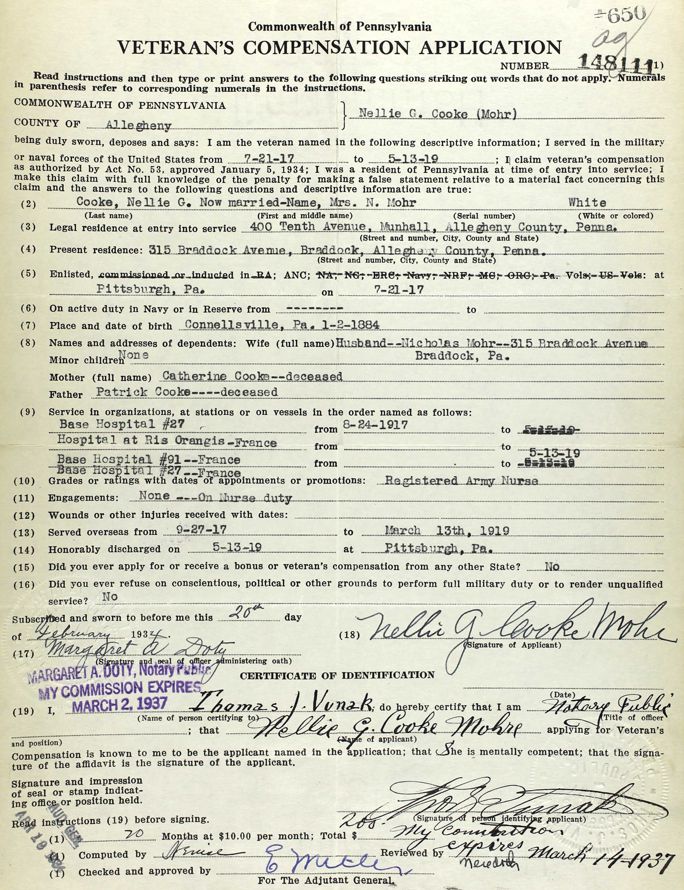 #650
Commonwealth of Pennsylvania
VETERAN'S COMPENSATION APPLICATION
NUMBER 148111 (1)
Read instructions and then type or print answers to the following questions striking out words that do not apply. Numerals
in parenthesis refer to corresponding numerals in the instructions.
COMMONWEALTH OF PENNSYLVANIA
COUNTY OF Allegheny } Nellie G. Cooke (Mohr)
being duly sworn, deposes and says: I am the veteran named in the following descriptive information; I served in the military
or naval forces of the United States from 7-21-17 to 5-13-19 ; I claim veteran's compensation
as authorized by Act No. 53, approved January 5, 1934; I was a resident of Pennsylvania at time of entry into service; I
make this claim with full knowledge of the penalty for making a false statement relative to a material fact concerning this
claim and the answers to the following questions and descriptive information are true:
(2) Cooke, Nellie G. Now married-Name, Mrs. N. Mohr White
(Last name) (First and middle name) (Serial number) (White or colored)
(3) Legal residence at entry into service 400 Tenth Avenue, Munhall, Allegheny County, Penna.
(Street and number, City, County and State)
(4) Present residence: 315 Braddock Avenue, Braddock, Allegheny County, Penna.
(Street and number, City, County and State)
(5) Enlisted, commissioned or inducted in RA; ANC; NA; NG; ERC; Navy; NRF; MC; ORC; Pa. Vols; US Vols: at
Pittsburgh, Pa. on 7-21-17
(6) On active duty in Navy or in Reserve from -------- to
(7) Place and date of birth Connellsville, Pa. 1-2-1884
(8) Names and addresses of dependents: Wife (full name) Husband--Nicholas Mohr--315 Braddock Avenue
Minor children None Braddock, Pa.
Mother (full name) Catherine Cooke--deceased
Father Patrick Cooke----deceased
(9) Service in organizations, at stations or on vessels in the order named as follows:
Base Hospital #27 from 8-24-1917 to 5-13-19
Hospital at Ris Orangis-France from to
Base Hospital #91--France from to 5-13-19
Base Hospital #27--France 5-13-19
(10) Grades or ratings with dates of appointments or promotions: Registered Army Nurse
(11) Engagements: None ---On Nurse duty
(12) Wounds or other injuries received with dates:
(13) Served overseas from 9-27-17 to March 13th, 1919
(14) Honorably discharged on 5-13-19 at Pittsburgh, Pa.
(15) Did you ever apply for or receive a bonus or veteran's compensation from any other State? No
(16) Did you ever refuse on conscientious, political or other grounds to perform full military duty or to render unqualified
service? No
Subscribed and sworn to before me this 20th day
of February 1934. (18) Nellie G Cooke Mohr
(Signature of Applicant)
(17) Margaret A Doty
(Signature and seal of officer administering oath)
MARGARET A. DOTY, Notary Public
MY COMMISSION EXPIRES
MARCH 2, 1937
CERTIFICATE OF IDENTIFICATION
(Date)
(19) I, Thomas J. Vunak, do hereby certify that I am Notary Public
(Name of person certifying to) (Title of officer
; that Nellie G. Cooke Mohre applying for Veteran's
and position) (Name of applicant)
Compensation is known to me to be the applicant named in the application; that She is mentally competent; that the signa-
ture of the affidavit is the signature of the applicant.
Signature and impression
of seal or stamp indicat-
ing office or position held.
(Signature of person identifying applicant)
Read instructions (19) before signing.
My Commission
expires March 14-1937
(1) 20 Months at $10.00 per month; Total $ 200
(1) Computed by Reviewed by Meredith
(1) Checked and approved by
For The Adjutant General.